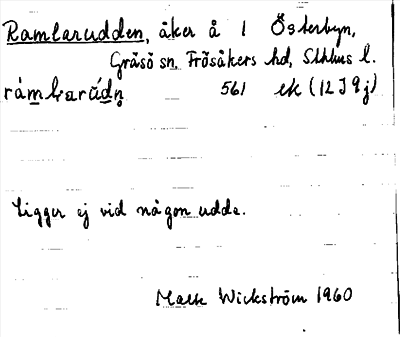 Ramlarudden, åker å 1 Österbyn,
Gräsö sn. Frösåkers hd, Sthlms l.
råmlarúdn̥ 561 ek (12 I 9 j)
Ligger ej vid någon udde.
Wickström 1960